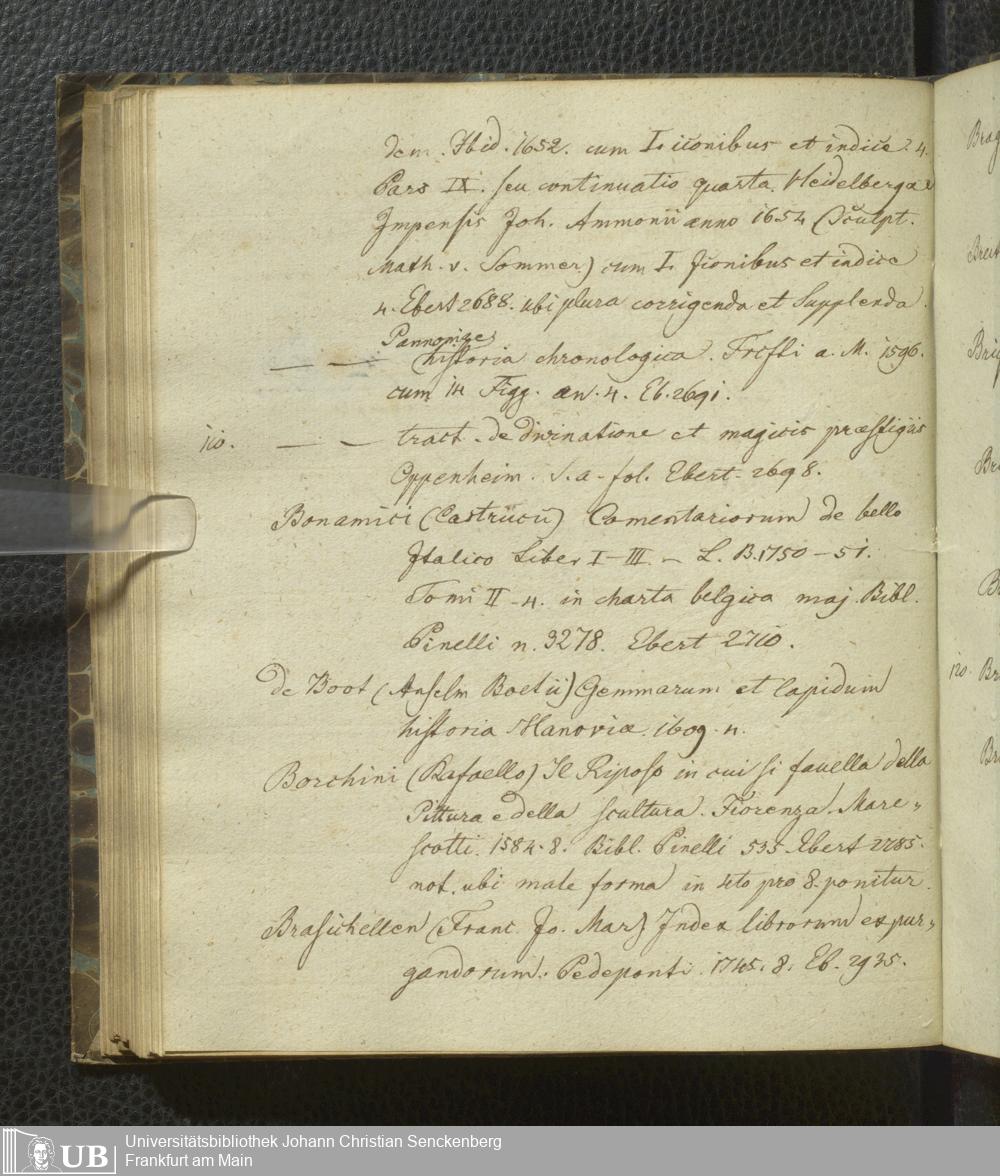 dem. Ibid. 1652. cum L iconibus et indice. 4.
Pars IX. seu continuatio quarta. Heidelbergae
Impensis Joh. Ammonii anno 1654 (Sculpt.
Math. v. Sommer) cum L Jionibus et indice
4. Ebert 2688. ubi plura corrigenda et Supplenda.
Pannoniae
— — historia chronologica. Frcfti a. M. 1596.
cum 14 Figg. aen. 4. Eb. 2691.
110. — — tract. de divinatione et magicis præstigiis
Oppenheim. S. a. fol. Ebert. 2698.
Bonamici (Castrucii) Comentariorum de bello
Italico Liber I-III. — L. B. 1750-51.
Tomi II-4. in charta belgica maj. Bibl.
Pinelli n. 3278. Ebert 2710.
de Boot (Anselm Boetii) Gemmarum et lapidum
historia Hanoviæ. 1609. 4.
Borchini (Rafaello) Il Riposo in cui si fauella della
Pittura e della scultura. Fiorenza. Mare„
scotti. 1584. 8. Bibl. Pinelli 535. Ebert 2785.
not. ubi male forma in 4to pro 8. ponitur.
Brasichellen (Franc. Jo. Mar) Index librorum expur„
gandorum. Pedeponti. 1745. 8. Eb. 2935.
Brag
Breit
Bri
Br
120. Br
Br
UB
Universitätsbibliothek Johann Christian Senckenberg
Frankfurt am Main